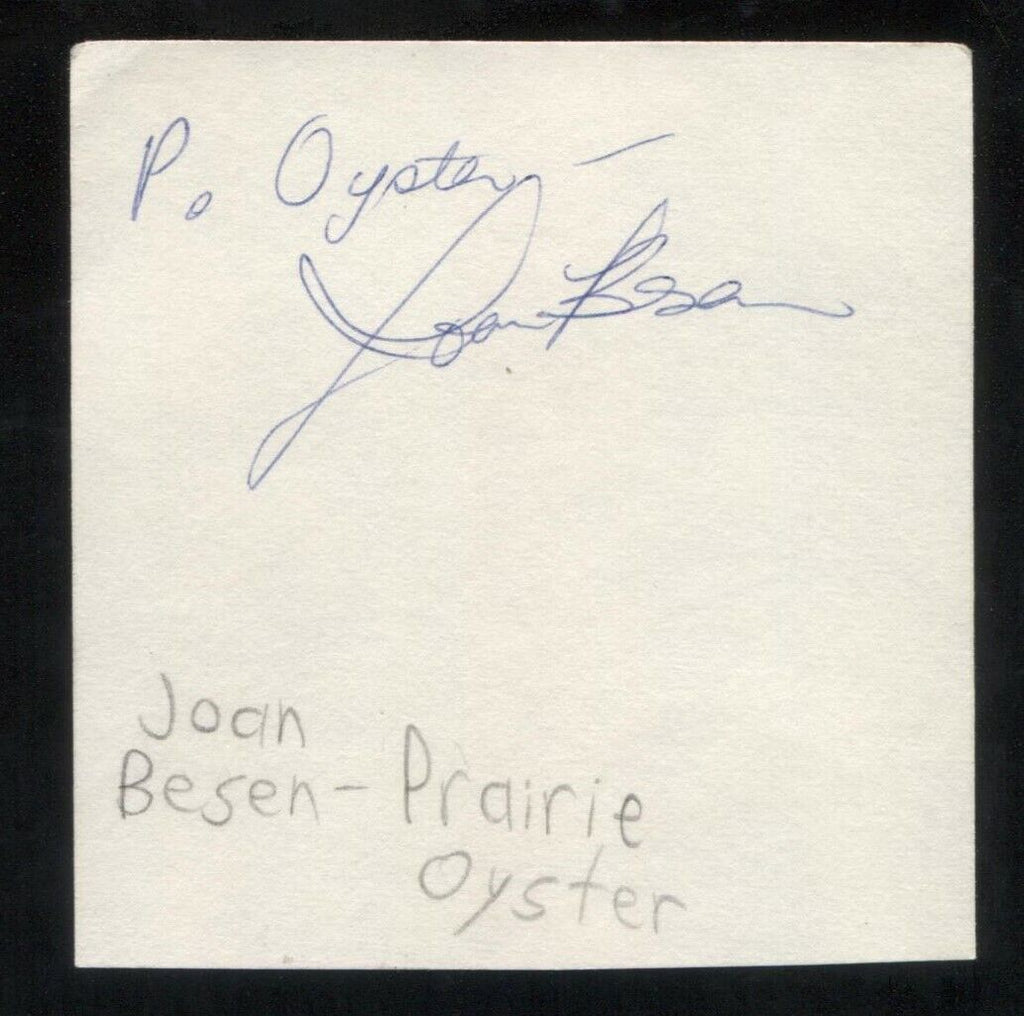 P. Oyster -
Joan Besen
Joan
Besen - Prairie
Oyster